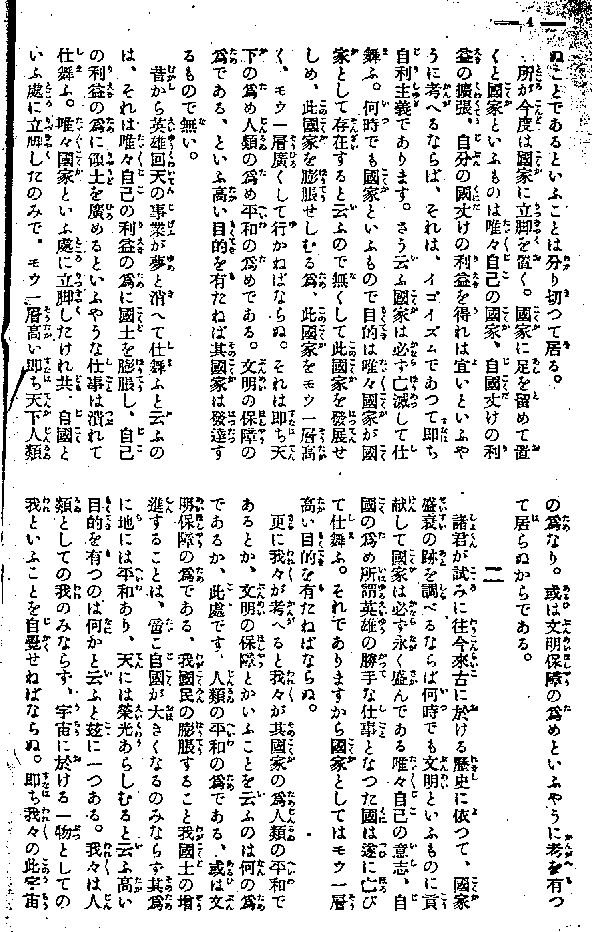 — 4 —
ぬことであるといふことは分り切つて居る。
所が今度は國家に立脚を置く。國家に足を留めて置
くと國家といふものは唯々自己の國家、自國丈けの利
益の擴張、自分の國丈けの利益を得れば宜いといふや
うに考へるならば、それは、イゴイズムであつて即ち
自利主義であります。さう云ふ國家は必ず亡滅して仕
舞ふ。何時でも國家といふもので目的は唯々國家が國
家として存在すると云ふので無くして此國家を發展せ
しめ、此國家を膨脹せしむる爲、此國家をモウ一層高
く、モウ一層廣くして行かねばならぬ。それは即ち天
下の爲め人類の爲め平和の爲めである。文明の保障の
爲である、といふ高い目的を有たねば其國家は發達す
るもので無い。
昔から英雄回天の事業が夢と消へて仕舞ふと云ふの
は、それは唯々自己の利益の爲に國土を膨脹し、自己
の利益の爲に領土を廣めるといふやうな仕事は潰れて
仕舞ふ。唯々國家といふ處に立脚したけれ共、自國と
いふ處に立脚したのみで、モウ一層高い即ち天下人類
の爲なり。或は文明保障の爲めといふやうに考を有つ
て居らぬからである。
二
諸君が試みに往今來古に於ける歷史に依つて、國家
盛衰の跡を調べるならば何時でも文明といふものに貢
献して國家は必ず永く盛んである唯々自己の意志、自
國の爲め所謂英雄の勝手な仕事となつた國は遂に亡び
て仕舞ふ。それでありますから國家としてはモウ一層
高い目的を有たねばならぬ。
更に我々が考へると我々が其國家の爲人類の平和で
あるとか、文明の保障とかいふことを云ふのは何の爲
であるか、此處です、人類の平和の爲である、或は文
明保障の爲である、我國民の膨脹すること我國土の增
進することは、啻に自國が大きくなるのみならず其爲
に地には平和あり、天には榮光あらしむると云ふ高い
目的を有つのは何かと云ふと玆に一つある。我々は人
類としての我のみならず、宇宙に於ける一物としての
我といふことを自覺せねばならぬ。即ち我々の此宇宙